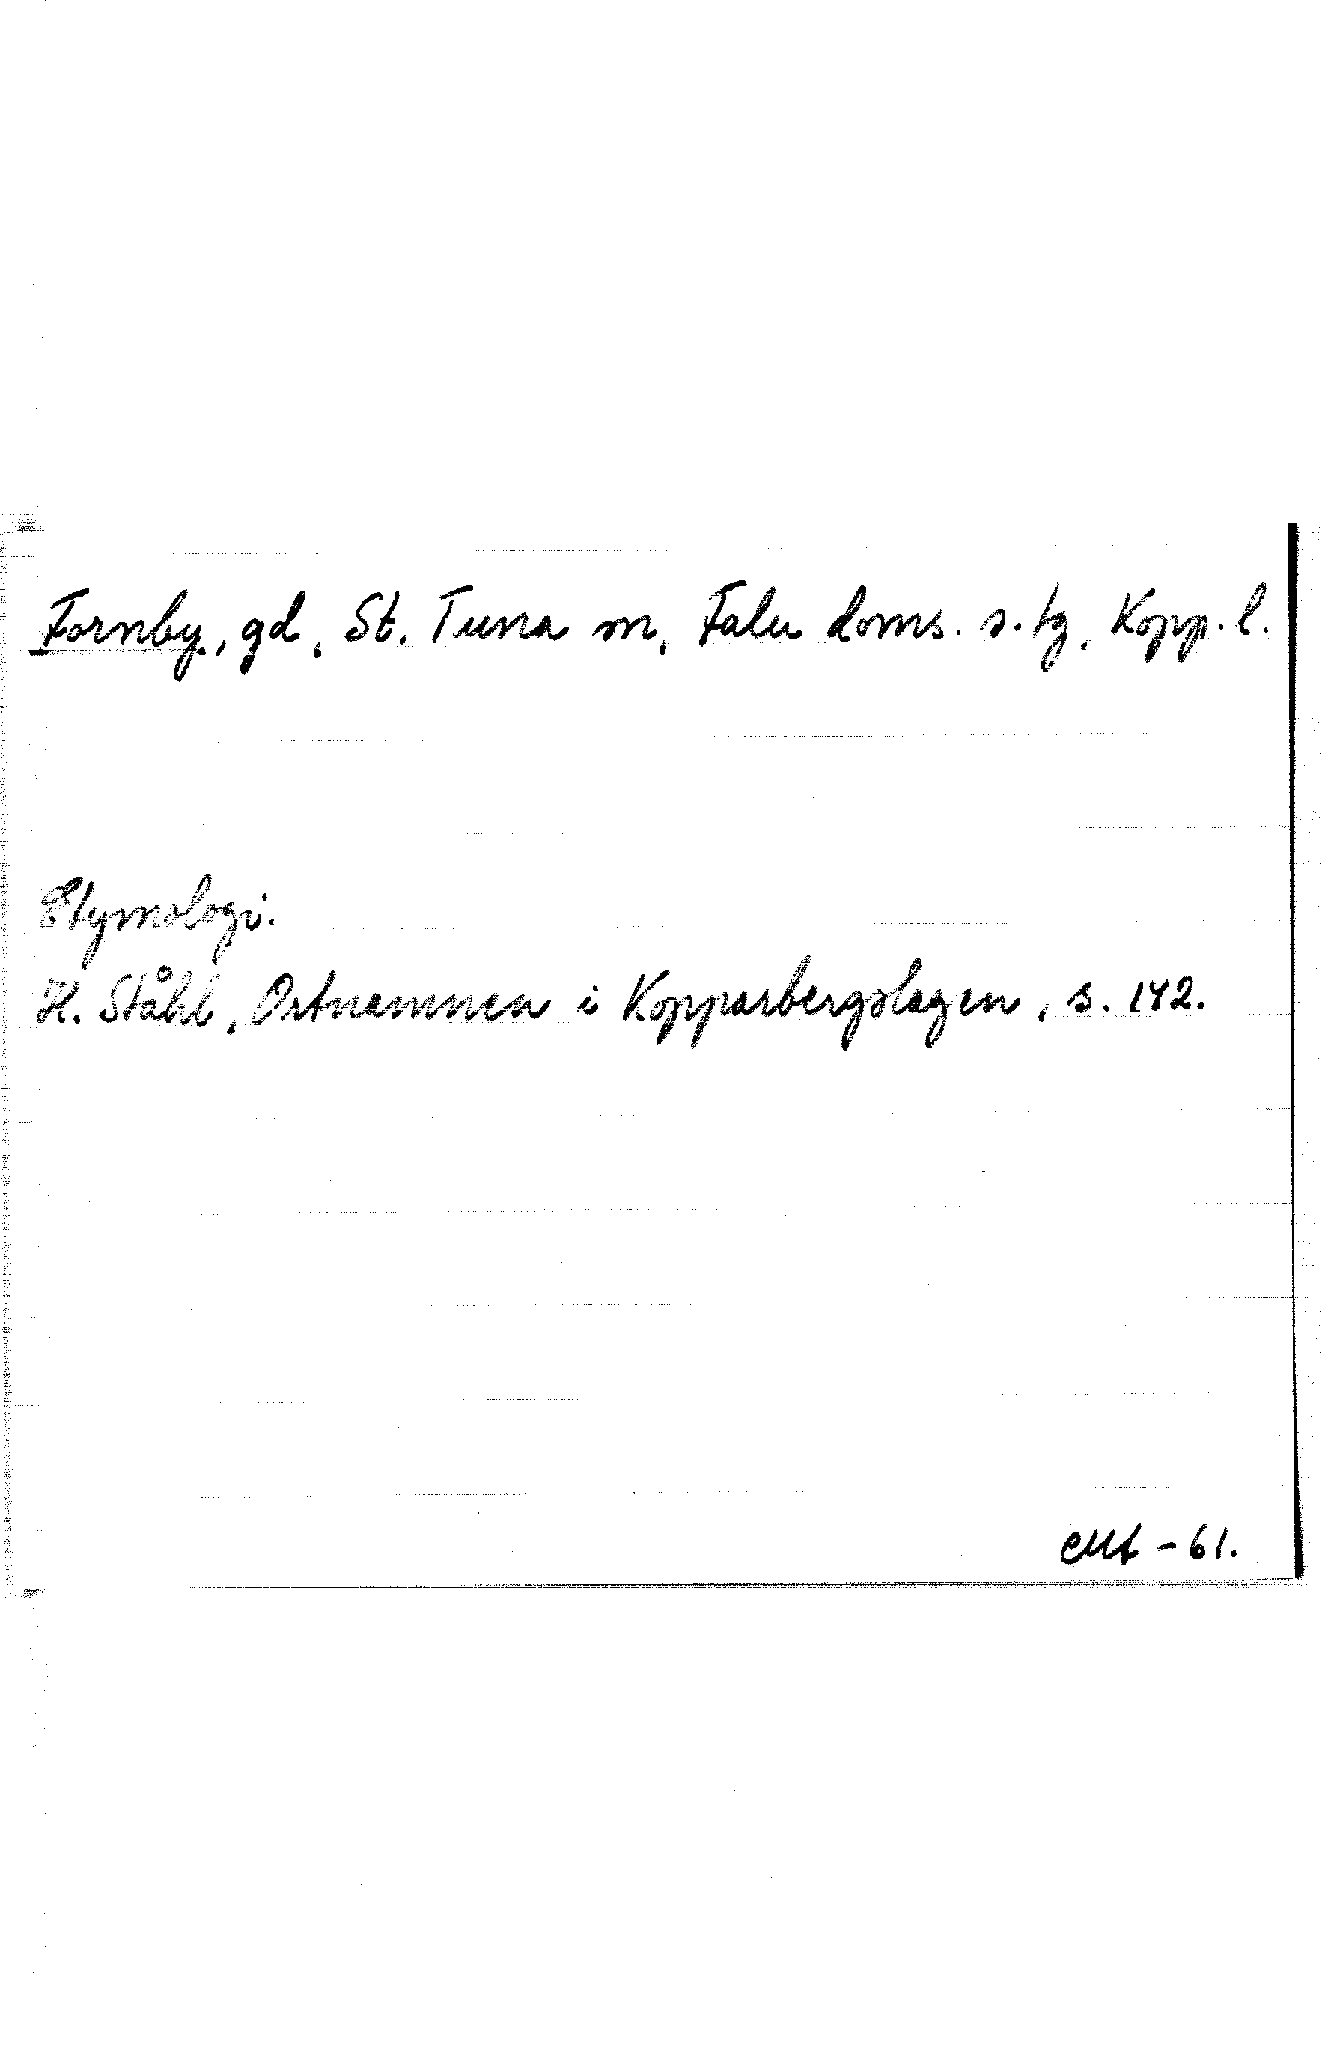 Fornby, gd, St. Tuna sn, Falu doms. s. tg, Kopp. l.
Etymologi.
H. Ståhl, Ortnamnen i Kopparbergslagen, s. 142.
- 61.